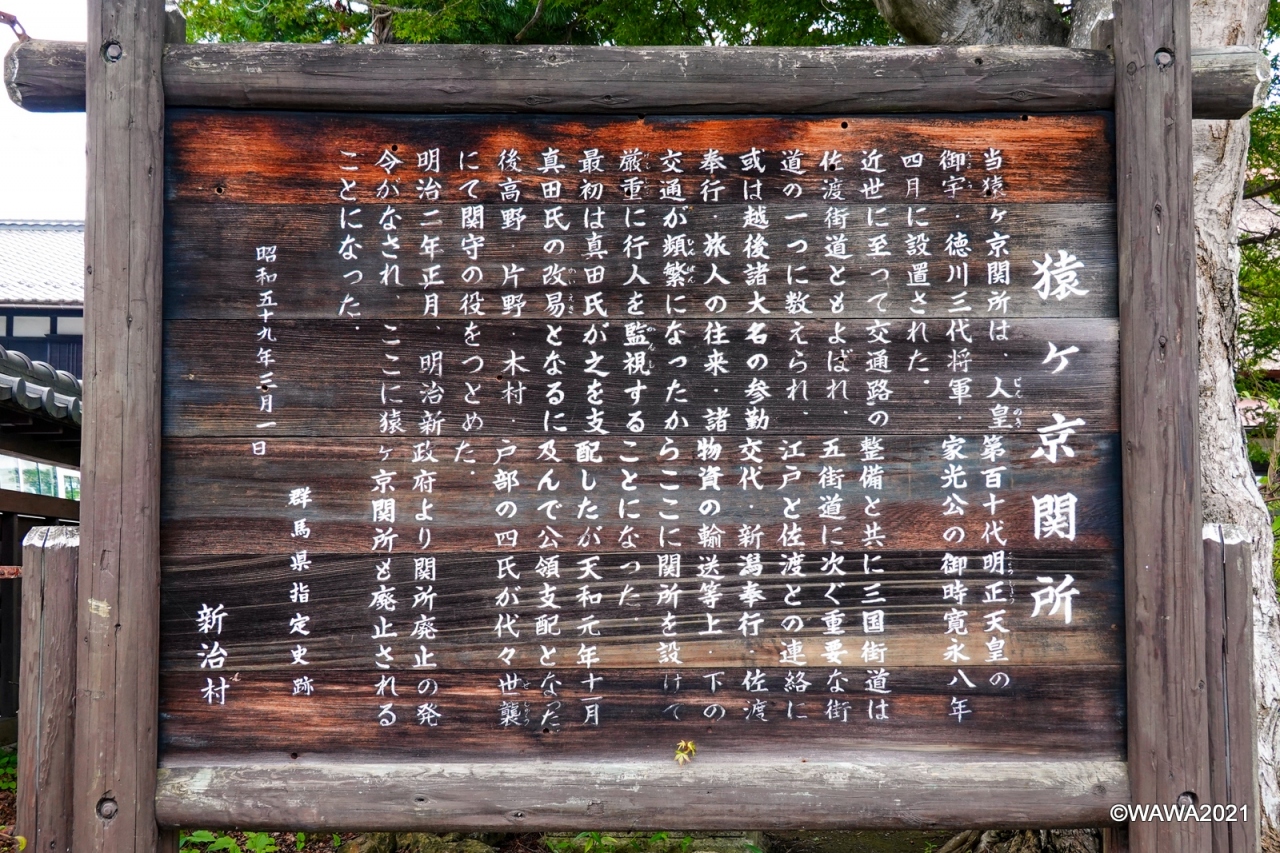 猿ヶ京関所
当猿ヶ京関所は、人皇第百十代明正天皇の
御宇・徳川三代将軍・家光公の御時寛永八年
四月に設置された。
近世に至って交通路の整備と共に三国街道は
佐渡街道ともよばれ、五街道に次ぐ重要な街
道の一つに数えられ、江戸と佐渡との連絡に
或は越後諸大名の参勤交代・新潟奉行・佐渡
奉行・旅人の往来・諸物資の輸送等上・下の
交通が頻繁になったからここに関所を設けて
厳重に行人を監視することになった。
最初は真田氏が之を支配したが天和元年十一月
真田氏の改易となるに及んで公領支配となった
後高野・片野・木村・戸部の四氏が代々世襲
にて関守の役をつとめた。
明治二年正月、明治新政府より関所廃止の発
令がなされ、ここに猿ヶ京関所も廃止される
ことになった。
群馬県指定史跡
昭和五十九年三月一日
新治村
©WAWA2021